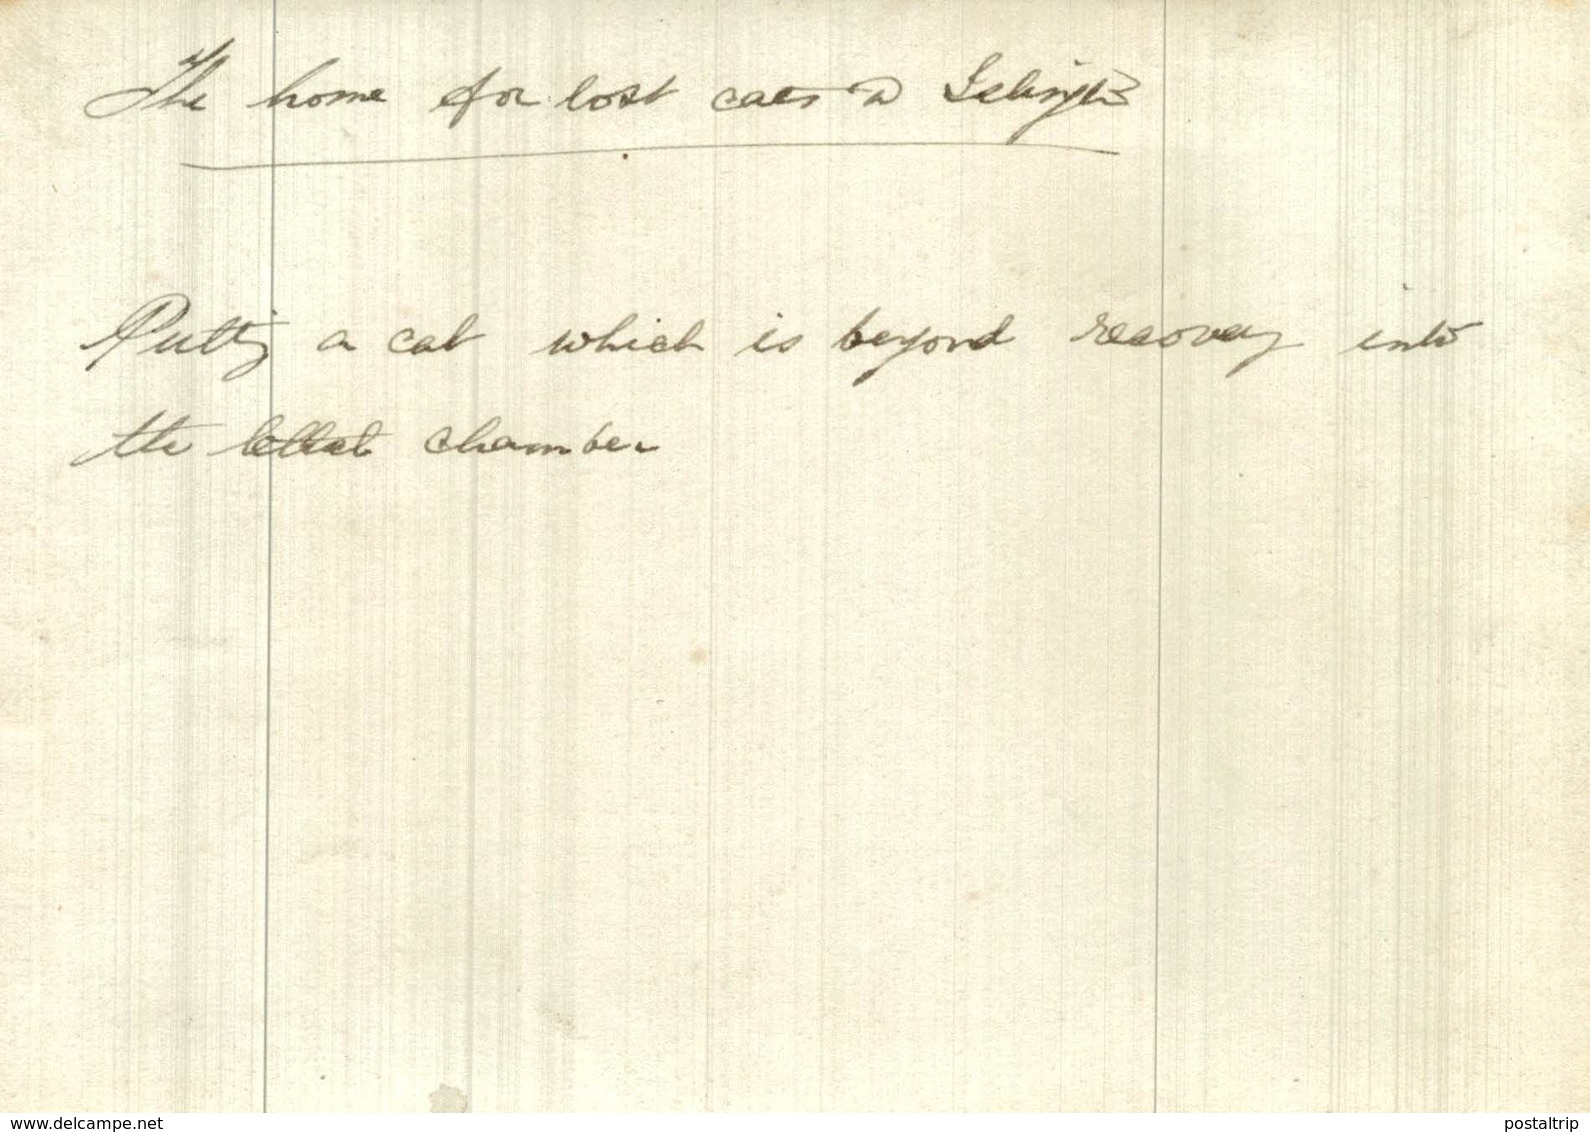 The home for lost cats Islington
Putting a cat which is beyond recovery into
the lethal chamber
www.delcampe.net
postaltrip